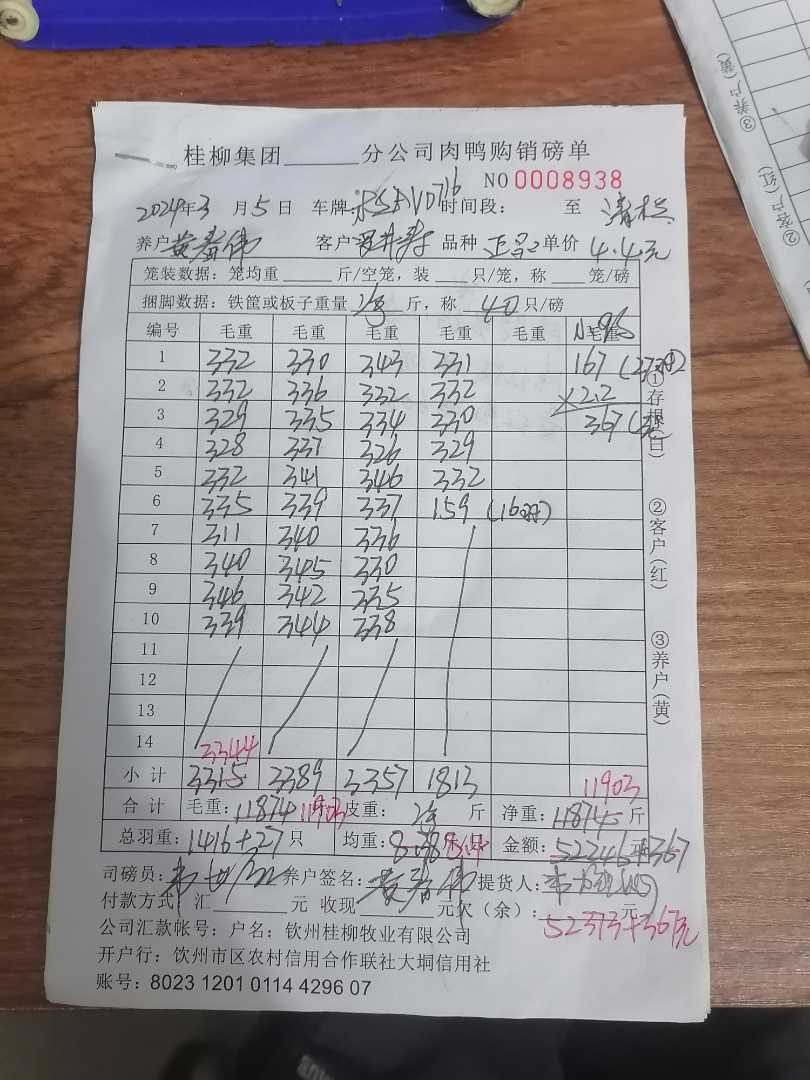 桂柳集团______分公司肉鸭购销磅单
NO 0008938
2024年3月5日 车牌: 时间段: 至
养户 客户 品种 单价 4.4元
笼装数据:笼均重____斤/空笼,装___只/笼,称___笼/磅
捆脚数据:铁筐或板子重量 斤,称 40 只/磅
编号 毛重 毛重 毛重 毛重 毛重 毛重
1 332 330 343 331 167
2 332 336 332 332 ×2.2
3 329 335 334 330 367
4 328 337 326 329
5 332 341 346 332
6 335 339 337 159 (16only)
7 311 340 336
8 340 345 330
9 346 342 335
10 339 344 338
11
12
13
14 3344
小计 3315 3389 3357 1813 11903
合计 毛重:11874 11903 皮重: 斤 净重:11874 斤
总羽重:1416+27只 均重: 金额:52246+367
司磅员: 养户签名: 提货人:
付款方式:汇______元 收现______元欠(余): 元
52373+367元
公司汇款帐号:户名:钦州桂柳牧业有限公司
开户行:钦州市区农村信用合作联社大垌信用社
账号:8023 1201 0114 4296 07
①存根(白)
②客户(红)
③养户(黄)
③养户(黄)
②客户(红)